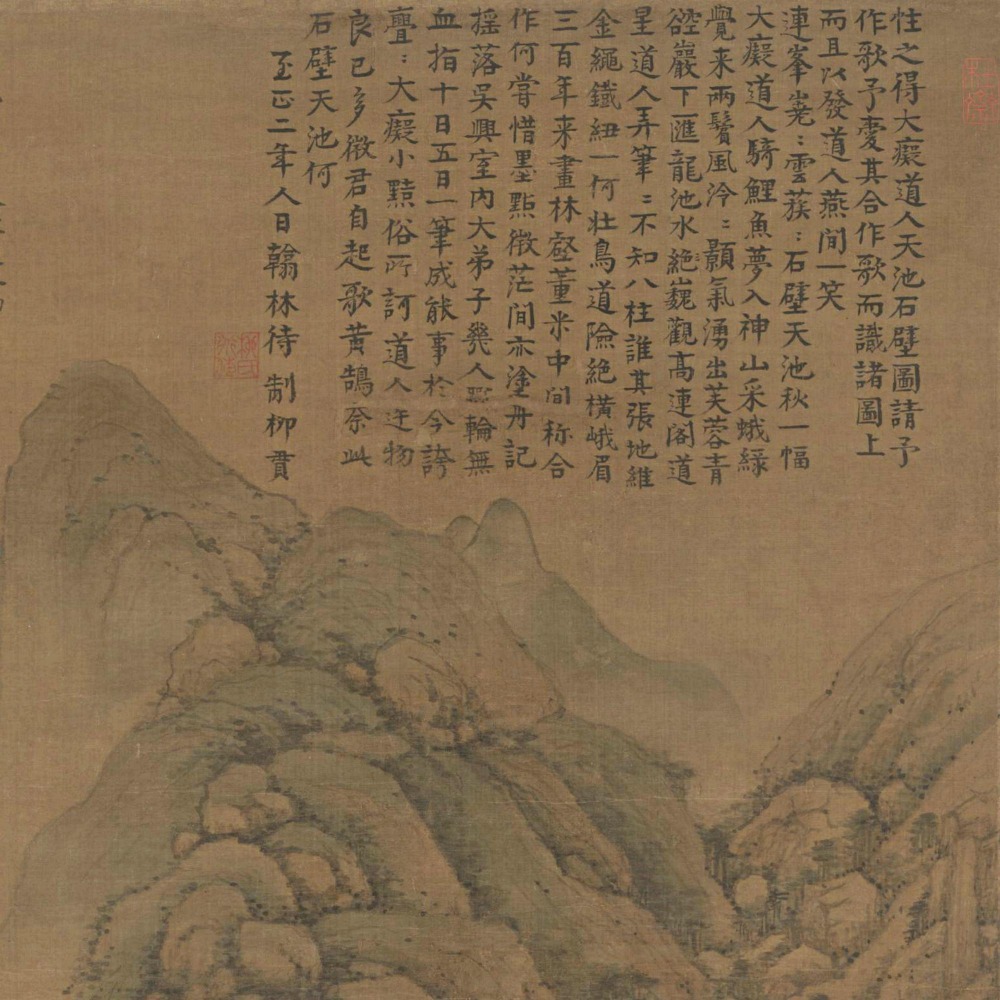 性之得大癡道人天池石壁圖請予
作歌予愛其合作歌而識諸圖上
而且以發道人燕間一笑
連峯嶤〻雲蔟〻石壁天池秋一幅
大癡道人騎鯉魚夢入神山采蛾緑
覺来兩鬢風泠〻顥氣湧出芙蓉青
硿巖下匯龍池水絶巍觀髙連閣道
星道人弄筆〻不知八柱誰其張地維
金繩鐵紐一何壯鳥道險絶横峨眉
三百年来畫林壑董米中間称合
作何嘗惜墨點微茫間亦塗丹記
揺落吳興室內大弟子幾人斲輪無
血指十日五日一筆成能事於今誇
亹〻大癡小黠俗所訶道人迕物
良已多微君自起歌黄鵠奈此
石壁天池何
至正二年人日翰林待制柳貫